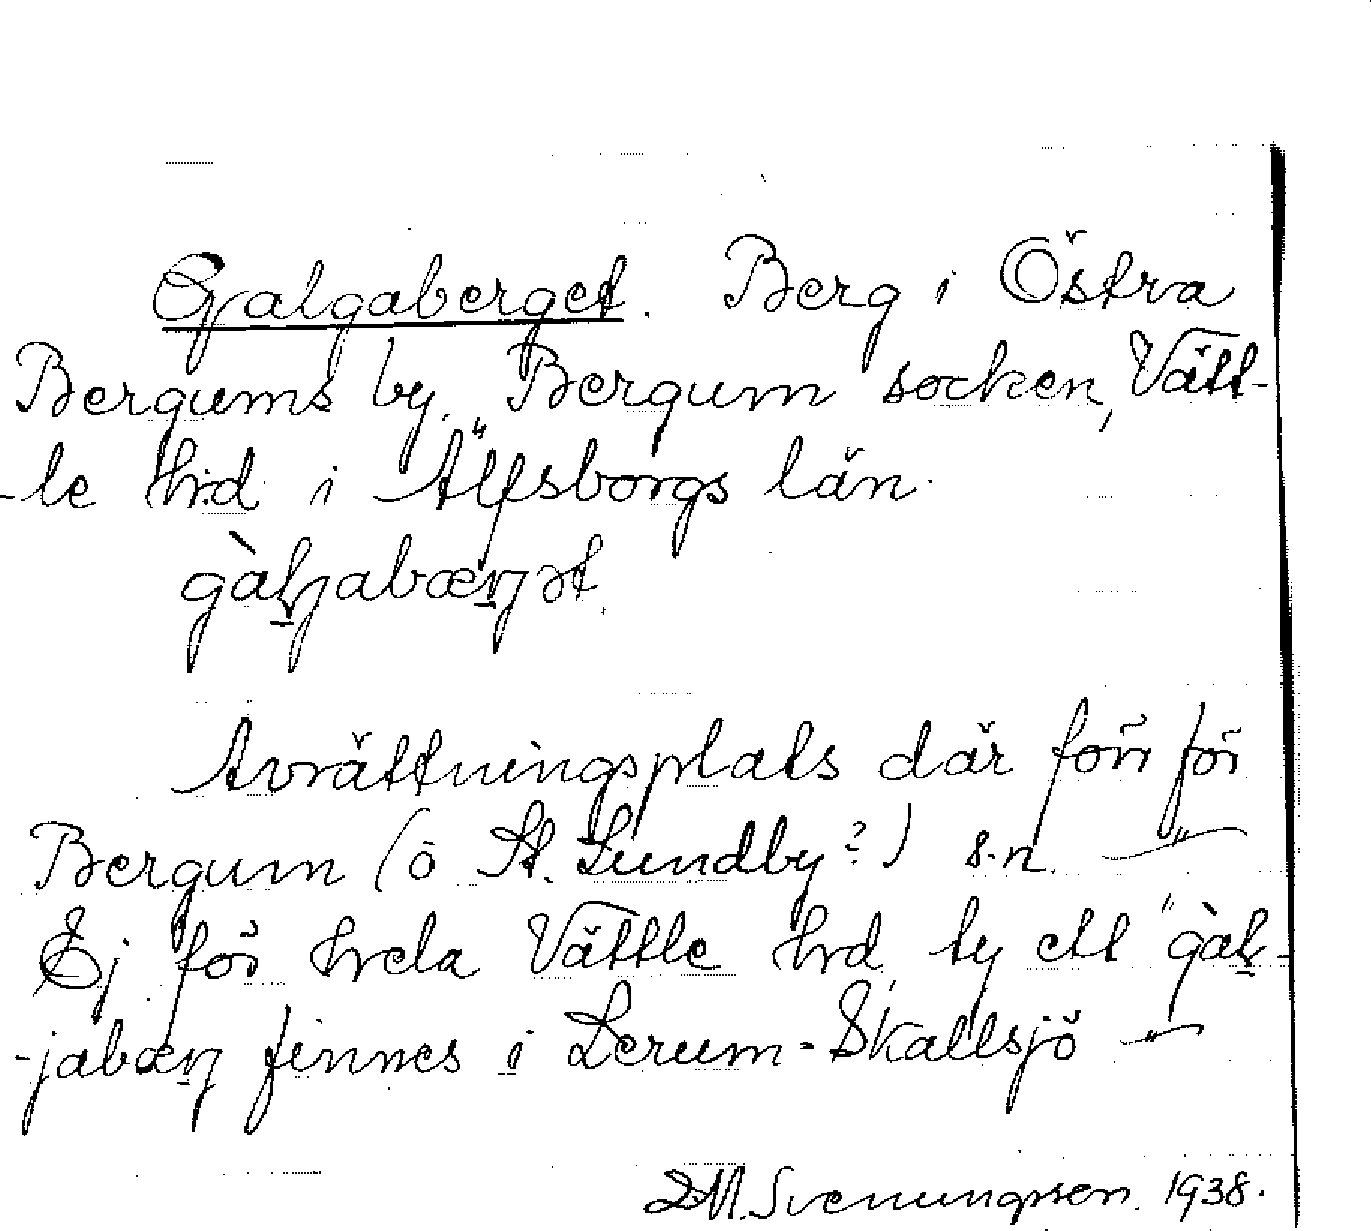 Galgaberget. Berg i Östra
Bergums by. Bergum socken, Vätt-
-le hrd i Älfsborgs län.
Avrättningsplats där förr för
Bergum (o St. Lundby?) s.n. —"—
Ej för hela Vättle hrd ty ett "gàl-
-jabærj finnes i Lerum-Skallsjö —"—
Svenungsson. 1938.